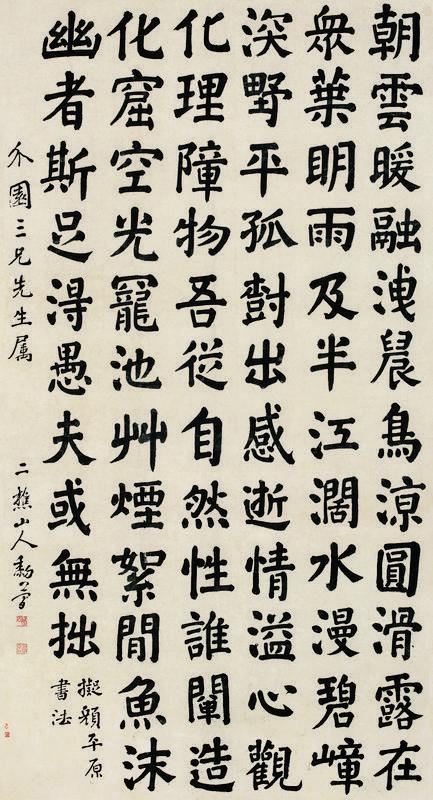 朝雲暖融洩晨鳥涼圓滑露在
眾葉明雨及半江濶水漫碧嶂
深野平孤樹出感逝情溢心觀
化理障物吾從自然性誰闡造
化窟空光池艸煙絮閒魚沫
幽者斯足得愚夫或無拙
擬顏平原
書法
介園三兄先生属
二樵山人黎簡